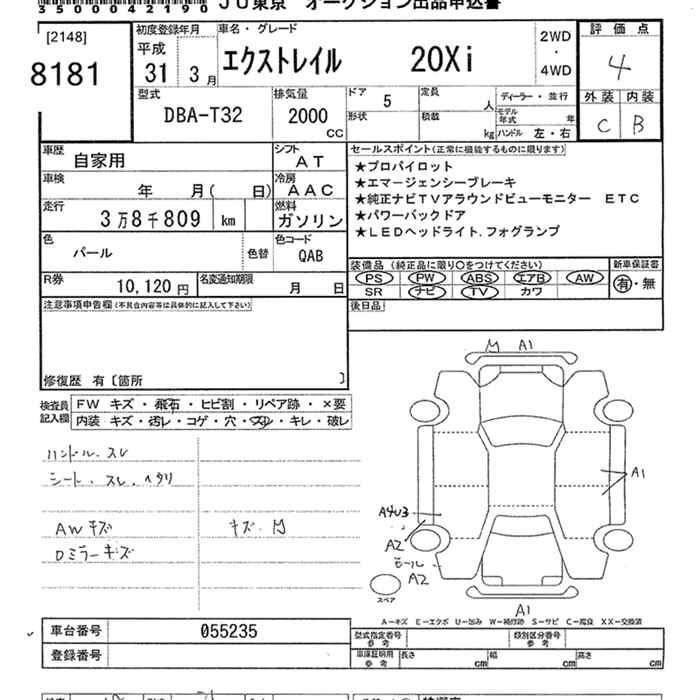 3500042190 JU東京 オークション出品申込書
[2148]
8181
初度登録年月 平成 31 3月
車名・グレード
エクストレイル 20Xi
2WD・4WD
評価点
4
外装 内装
C B
型式
DBA-T32
排気量
2000 CC
ドア 5
定員 人
形状
積載 kg
ディーラー・並行
モデル年式 年
ハンドル 左・右
車歴 自家用
シフト AT
車検 年 月( 日)
冷房 AAC
走行 3万8千809 km
燃料 ガソリン
色 パール
色替
色コード QAB
R券 10,120円
名変通知期限 月 日
セールスポイント(正常に機能するものに限ります)
★プロパイロット
★エマージェンシーブレーキ
★純正ナビTVアラウンドビューモニター ETC
★パワーバックドア
★LEDヘッドライト.フォグランプ
装備品(純正品に限り○をつけてください)
PS PW ABS エアB AW
SR ナビ TV カワ
新車保証書
有・無
後日品
注意事項申告欄(不具合内容等は具体的に記入して下さい)
修復歴 有〔箇所 〕
検査員記入欄
FW キズ・飛石・ヒビ割・リペア跡・×要
内装 キズ・汚レ・コゲ・穴・スレ・キレ・破レ
ハンドル.スレ
シート.スレ.ヘタリ
AWキズ
キズ.M
Dミラーキズ
M A1
A1
A4U3
A2
モール A2
スペア
A1
A-キズ E-エクボ U-凹み W-補修跡 S-サビ C-腐食 XX-交換済
車台番号 055235
登録番号
型式指定番号 参考
類別区分番号 参考
車庫証明用 参考
長さ cm
幅 cm
高さ cm